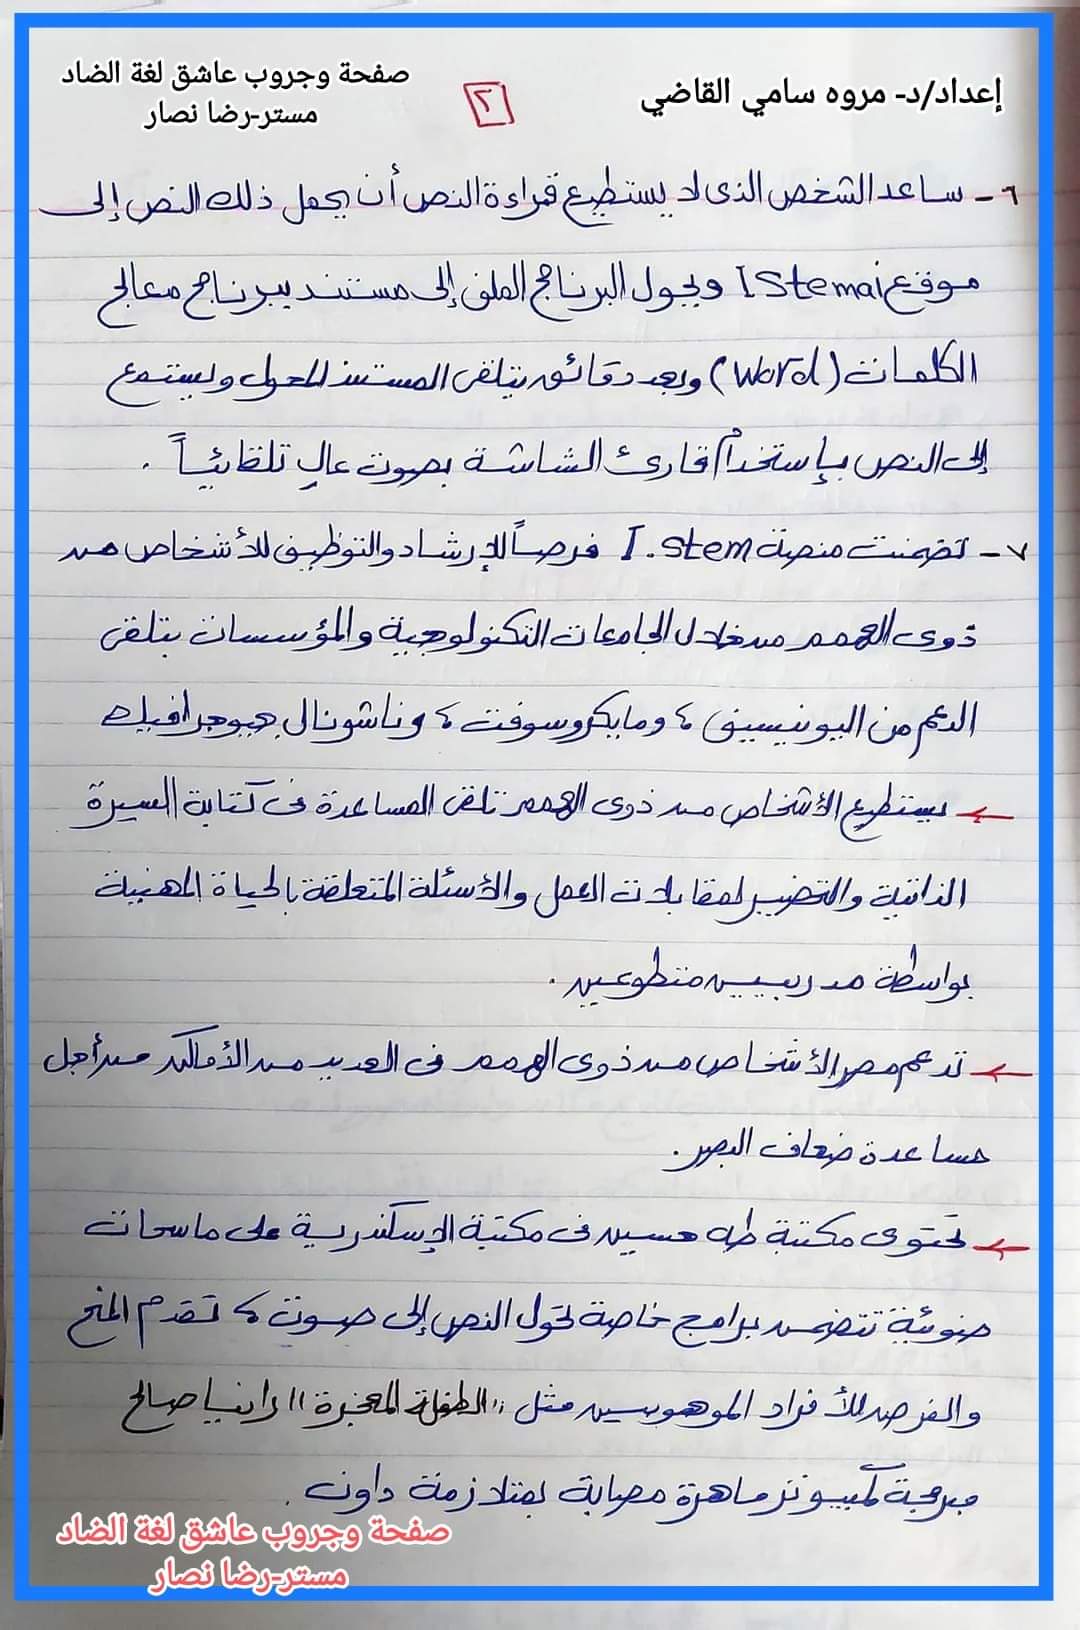 إعداد/د- مروه سامي القاضي
٢
صفحة وجروب عاشق لغة الضاد
مستر-رضا نصار
٦- ساعد الشخص الذى لا يستطيع قراءة النص أن يحمل ذلك النص إلى
موقع I Stemai ويحول البرنامج الملف إلى مستند ببرنامج معالج
الكلمات (Word) وبعد دقائق يتلقى المستند المحول ويستمع
إلى النص بإستخدام قارئ الشاشة بصوت عالٍ تلقائياً .
٧- تضمنت منصة I.stem فرصاً للإرشاد والتوظيف للأشخاص من
ذوى الهمم من خلال الجامعات التكنولوجية والمؤسسات بتلقى
الدعم من اليونيسيف ، ومايكروسوفت ، وناشونال جيوجرافيك
← يستطيع الأشخاص من ذوى الهمم تلقى المساعدة فى كتابة السيرة
الذاتية والتحضير لمقابلات العمل والأسئلة المتعلقة بالحياة المهنية
بواسطة مدربيين متطوعين .
← تدعم مصر الأشخاص من ذوى الهمم فى العديد من الأماكن من أجل
مساعدة ضعاف البصر .
← تحتوى مكتبة طه حسين فى مكتبة الإسكندرية على ماسحات
ضوئية تتضمن برامج خاصة تحول النص إلى صوت ، تقدم المنح
والفرص للأفراد الموهوبين مثل "الطفلة المعجزة" رانيا صالح
مبرمجة كمبيوتر ماهرة مصابة بمتلازمة داون .
صفحة وجروب عاشق لغة الضاد
مستر-رضا نصار